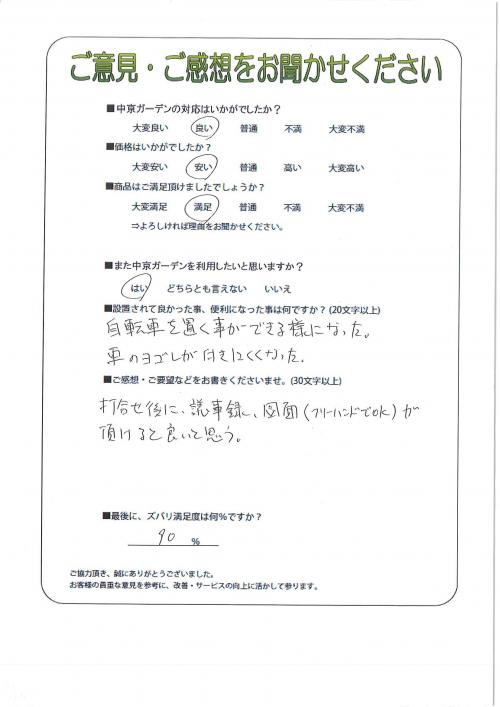 ご意見・ご感想をお聞かせください
■中京ガーデンの対応はいかがでしたか?
大変良い 良い 普通 不満 大変不満
■価格はいかがでしたか?
大変安い 安い 普通 高い 大変高い
■商品はご満足頂けましたでしょうか?
大変満足 満足 普通 不満 大変不満
⇒よろしければ理由をお聞かせください。
■また中京ガーデンを利用したいと思いますか?
はい どちらとも言えない いいえ
■設置されて良かった事、便利になった事は何ですか?(20文字以上)
自転車を置く事ができる様になった。
車のヨゴレが付きにくくなった.
■ご感想・ご要望などをお書きくださいませ。(30文字以上)
打合せ後に、議事録、図面(フリーハンドでOK)が
頂けると良いと思う。
■最後に、ズバリ満足度は何%ですか?
90 %
ご協力頂き、誠にありがとうございました。
お客様の貴重な意見を参考に、改善・サービスの向上に活かして参ります。